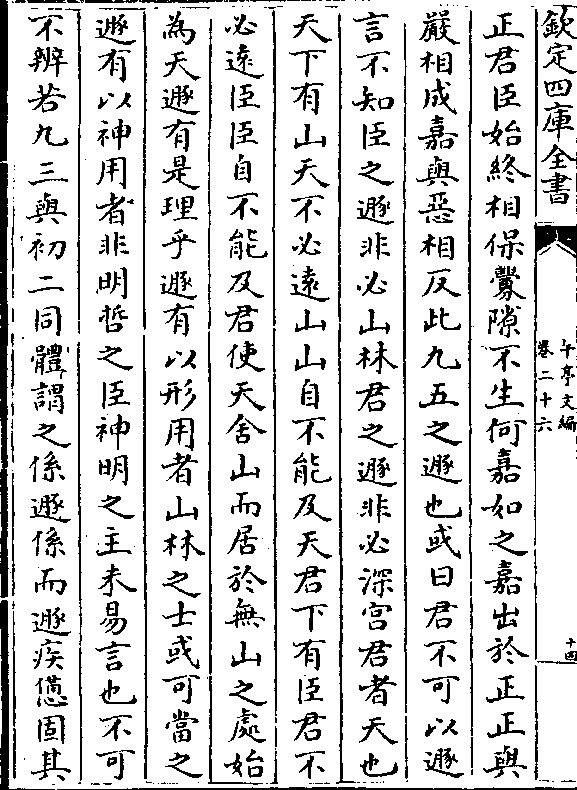 欽定四庫全書
午亭文編
卷二十六
十四
正君臣始終相保釁隙不生何嘉如之嘉出於正正與
嚴相成嘉與惡相反此九五之遯也或曰君不可以遯
言不知臣之遯非必山林君之遯非必深宫君者天也
天下有山天不必逺山山自不能及天君下有臣君不
必逺臣臣自不能及君使天舍山而居於無山之處始
為天遯有是理乎遯有以形用者山林之士或可當之
遯有以神用者非明哲之臣神明之主未易言也不可
不辨若九三與初二同體謂之係遯係而遯疾憊固其